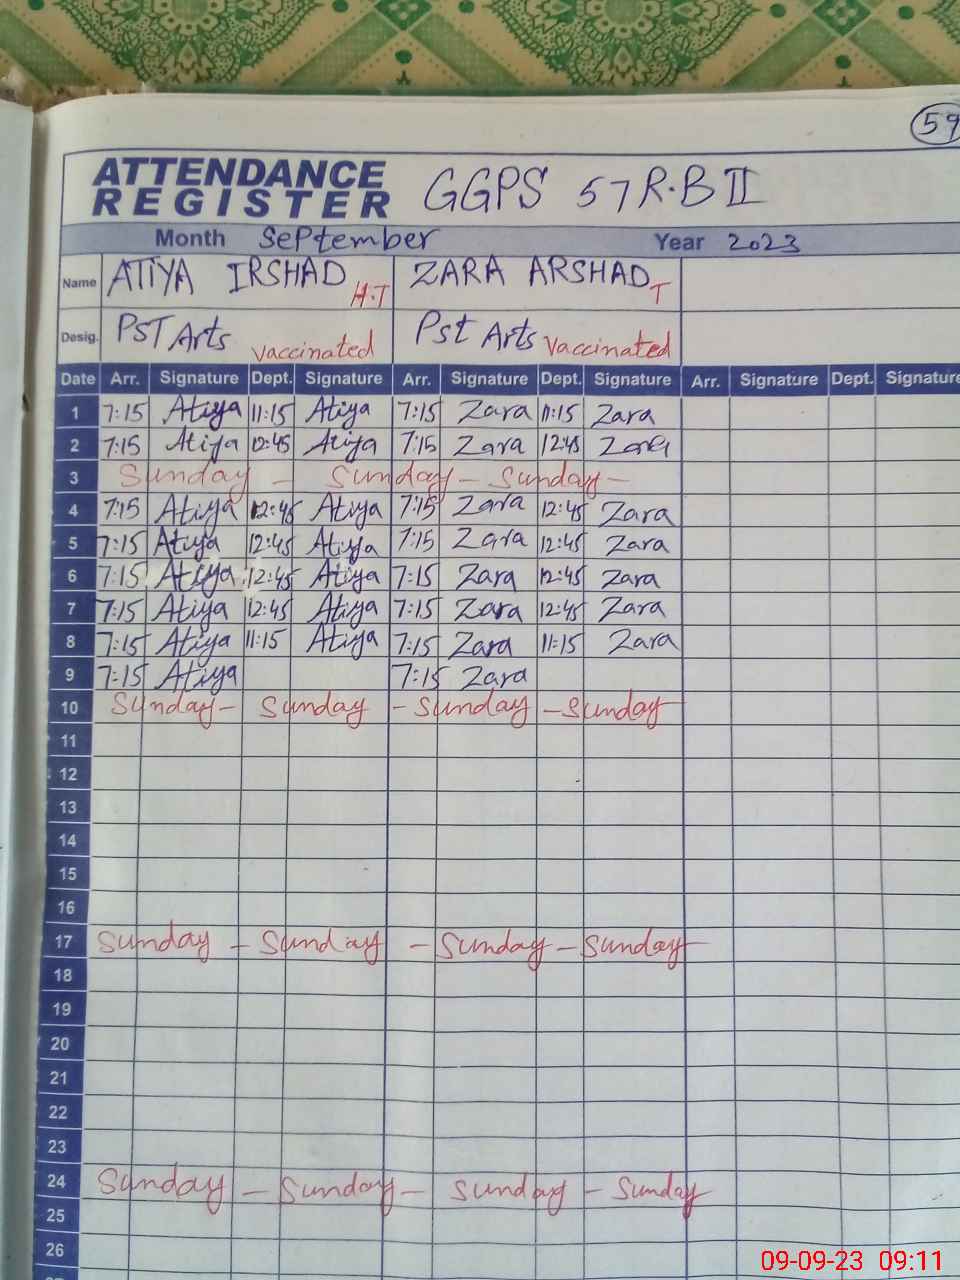 59
ATTENDANCE REGISTER GGPS 57 R.B II
Month September Year 2023
Name ATIYA IRSHAD H.T ZARA ARSHAD T
Desig. PST Arts vaccinated Pst Arts vaccinated
Date Arr. Signature Dept. Signature Arr. Signature Dept. Signature Arr. Signature Dept. Signature
1 7:15 Atiya 11:15 Atiya 7:15 Zara 11:15 Zara
2 7:15 Atiya 12:45 Atiya 7:15 Zara 12:45 Zara
3 Sunday - Sunday - Sunday -
4 7:15 Atiya 12:45 Atiya 7:15 Zara 12:45 Zara
5 7:15 Atiya 12:45 Atiya 7:15 Zara 12:45 Zara
6 7:15 Atiya 12:45 Atiya 7:15 Zara 12:45 Zara
7 7:15 Atiya 12:45 Atiya 7:15 Zara 12:45 Zara
8 7:15 Atiya 11:15 Atiya 7:15 Zara 11:15 Zara
9 7:15 Atiya 7:15 Zara
10 Sunday - Sunday - Sunday - Sunday
11
12
13
14
15
16
17 Sunday - Sunday - Sunday - Sunday
18
19
20
21
22
23
24 Sunday - Sunday - Sunday - Sunday
25
26
09-09-23 09:11